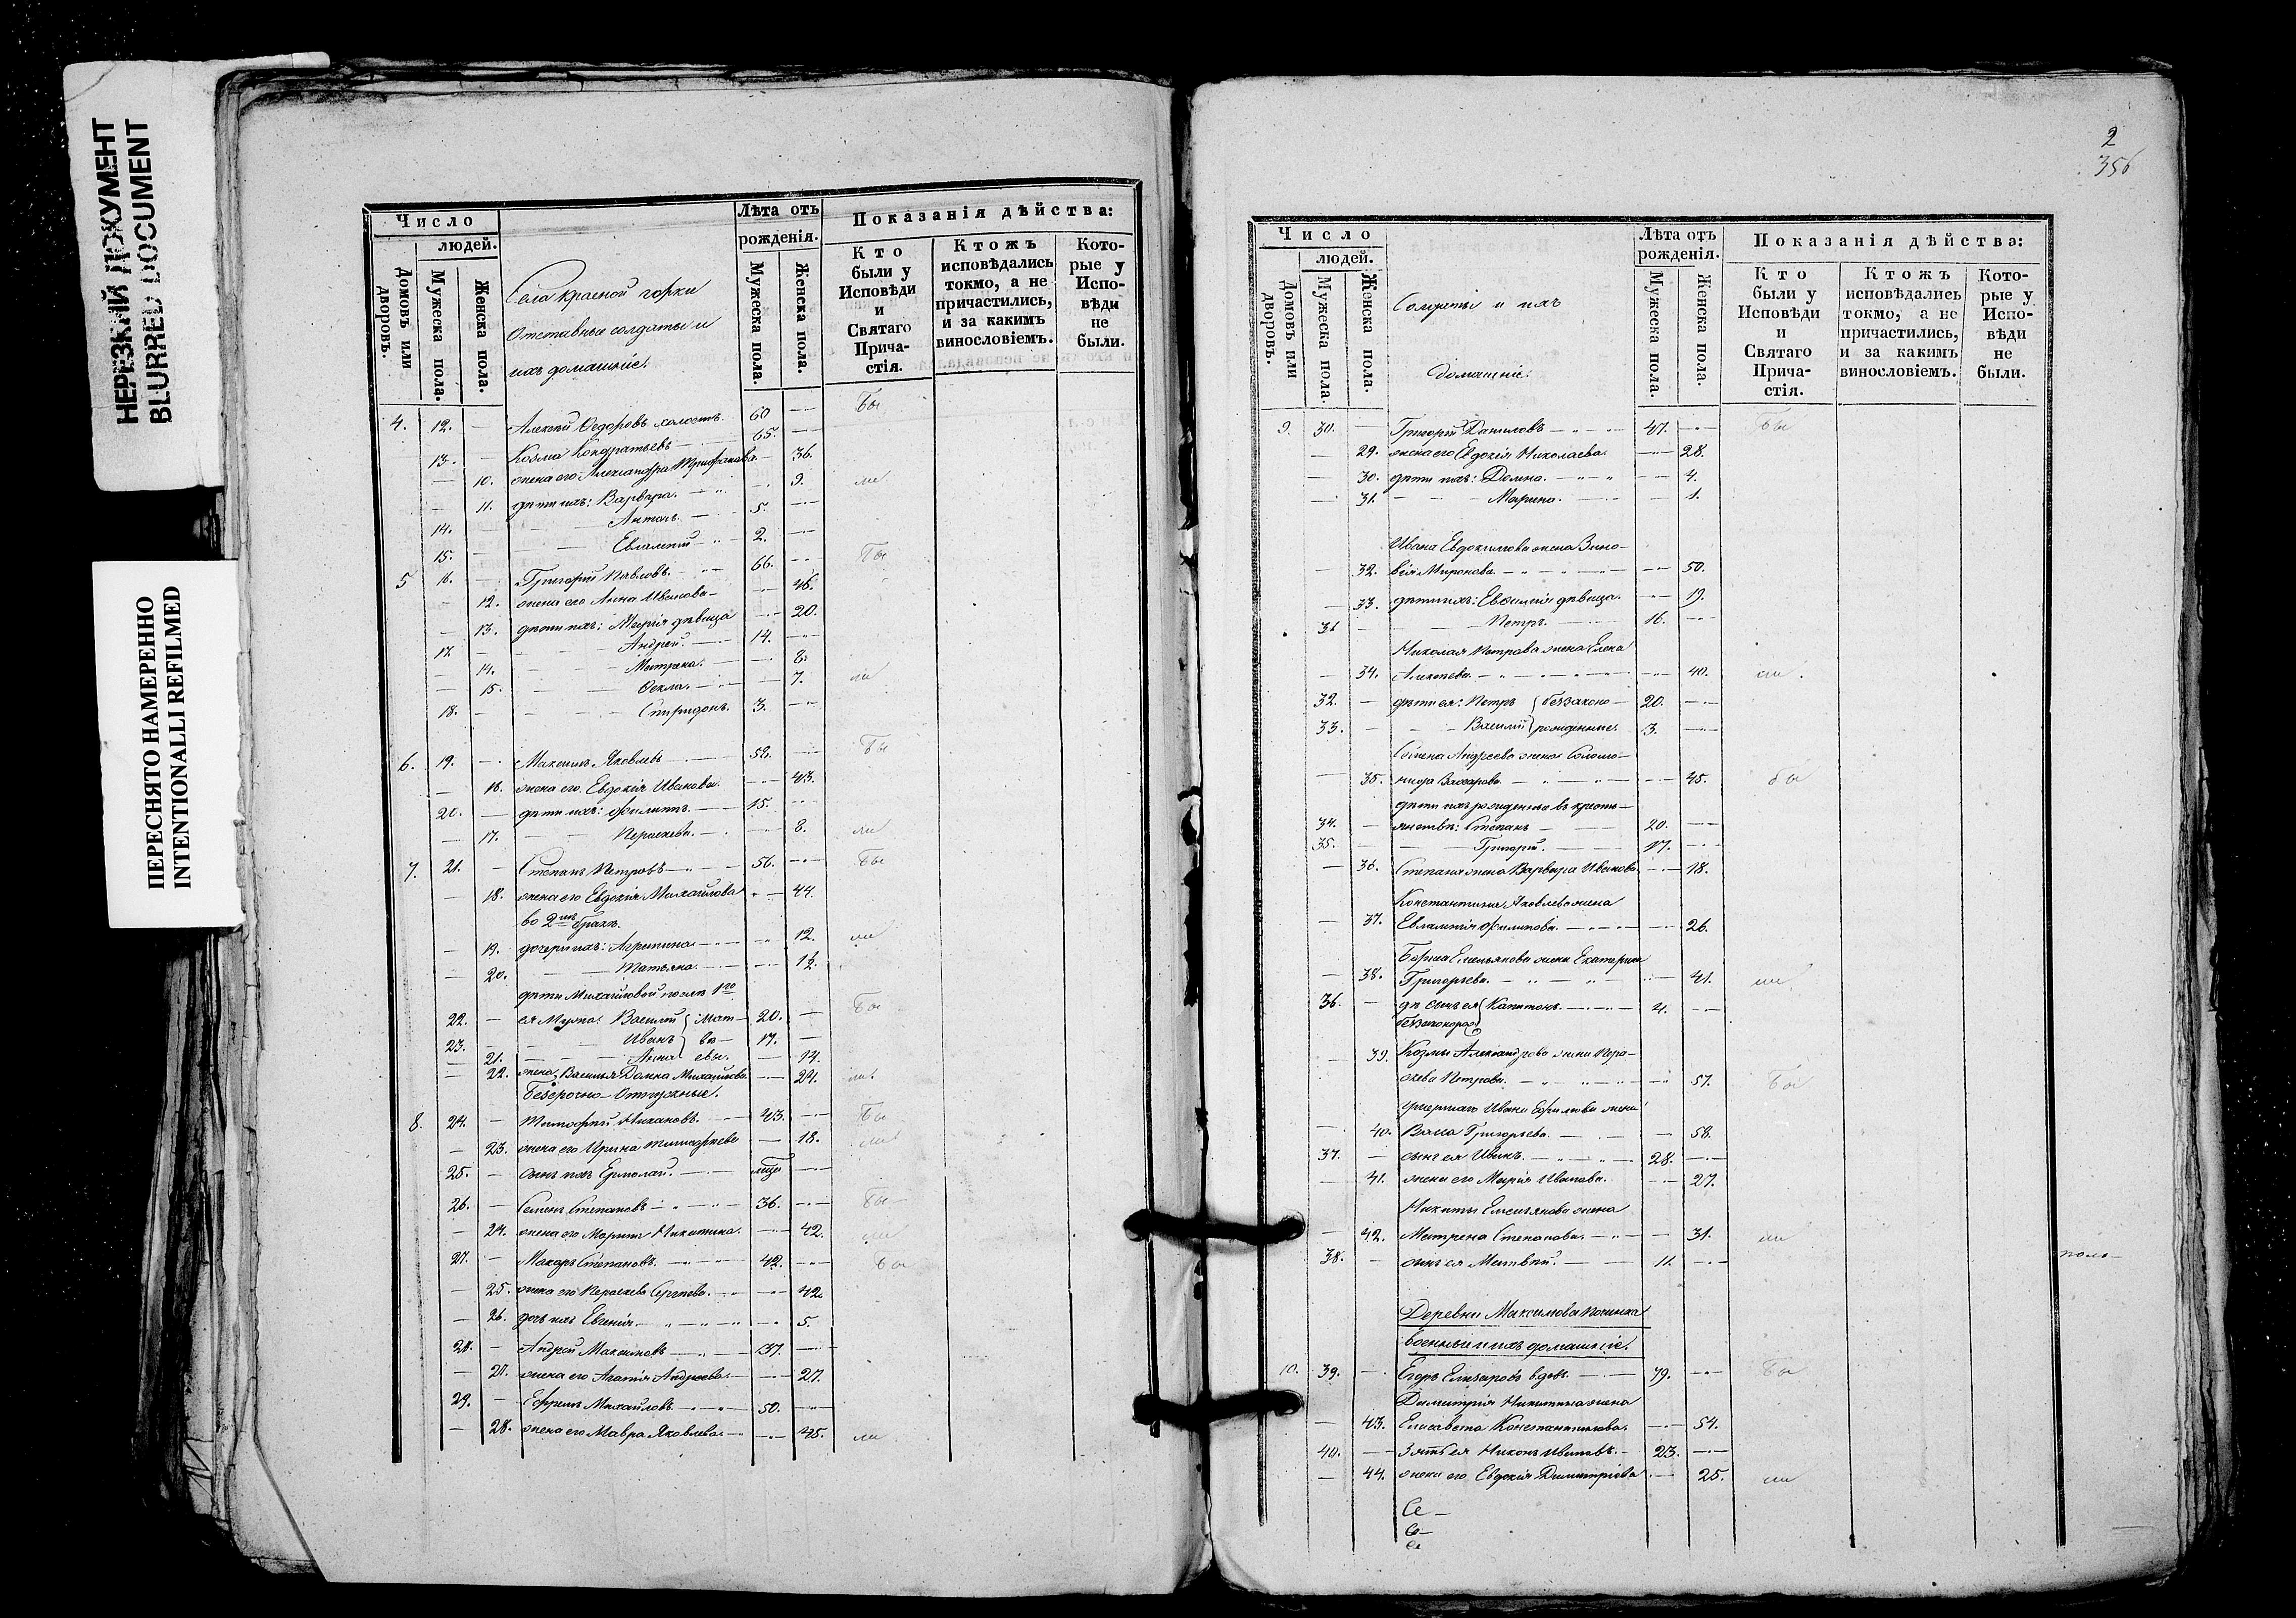 НЕРЕЗКИЙ ДОКУМЕНТ
BLURRED DOCUMENT
ПЕРЕСНЯТО НАМЕРЕННО
INTENTIONALLI REFILMED
Число
людей.
Домовъ или дворовъ.
Мужеска пола.
Женска пола.
Села Красной горки
Отставные солдаты и
ихъ домашніе.
Лѣта отъ рожденія.
Мужеска пола.
Женска пола.
Показанія дѣйства:
Кто были у Исповѣди и Святаго Прича-стія.
Ктожъ исповѣдались токмо, а не причастились, и за какимъ винословіемъ.
Кото-рые у Испо-вѣди не были.
4. 12. — Алексѣй Ѳедоровъ холостъ. 60 — Бы
13. — Козма Кондратьевъ 65. —
— 10. жена его Александра — 36.
— 11. дѣти ихъ: Варвара. — 9. ма
14. — Антонъ. 5. —
15. — Евлампій 2. —
5 16. — Григорій Павловъ. 66. — Бы
— 12. жена его Анна Иванова — 46.
— 13. дѣти ихъ: Марія дѣвица — 20.
17. — Андрей. 14. —
— 14. Матрена. — 8.
— 15. Ѳекла. — 7. ма
18. — Спиридонъ. 3. —
6. 19. — Максимъ Яковлевъ 58. — Бы
— 16. жена его Евдокія Иванова. — 43.
20. — дѣти ихъ: Филиппъ. 15. —
— 17. Параскева. — 8. ма
7. 21. — Степанъ Петровъ 56. — Бы
— 18. жена его Евдокія Михайлова — 44.
во 2мъ бракѣ.
— 19. дочери ихъ: Агрипина — 12. ма
— 20. Татьяна. — 1½.
дѣти Михайловой послѣ 1го
22. — ея мужа: Василій Мат- 20. — Бы
23. — Иванъ вѣ- 17. —
— 21. Анна евы. — 14.
— 22. жена Василья Домна Михайлова. — 24. ма
Безсрочно-Отпускные.
8. 24. — Тимофей 43. — Бы
— 23. жена его Ирина Тимофеева — 18. ма
25. — сынъ ихъ Ермолай. —
26. — Семенъ Степановъ 36. — Бы
— 24. жена его Никитина. — 42. ма
27. — Макаръ Степановъ. 42. — Бы
— 25. жена его Параскева Сергѣева. — 42.
— 26. дочь ихъ Евгенія. — 5.
28. — Андрей Максимовъ 37. —
— 27. жена его Агафія Андреева. — 27.
29. — Ефремъ Михайловъ 50. —
— 28. жена его Мавра Яковлева — 45. ма
2
356
Число
людей.
Домовъ или дворовъ.
Мужеска пола.
Женска пола.
Солдаты и ихъ
домашніе.
Лѣта отъ рожденія.
Мужеска пола.
Женска пола.
Показанія дѣйства:
Кто были у Исповѣди и Святаго Прича-стія.
Ктожъ исповѣдались токмо, а не причастились, и за какимъ винословіемъ.
Кото-рые у Испо-вѣди не были.
9. 30. — Григорій Даниловъ 47. — Бы
— 29. жена его Евдокія Николаева. — 28.
— 30. дѣти ихъ: Домна. — 4.
— 31. Марина. — 1.
Ивана Евдокимова жена Зино-
— 32. вія Миронова. — 50.
— 33. дѣти ихъ: Евѳимія дѣвица. — 19.
31 — Петръ. 16. —
Николая Петрова жена Елена
— 34. Алексѣева. — 40. ма.
32. — дѣти ея: Петръ беззаконо- 20. —
33. — Василій рожденные. 3. —
Семена Андреева жена Соломо-
— 35. нида Захарова. — 45. бы
дѣти ихъ рожденные въ кресть-
34. — янствѣ: Степанъ 20. —
35. — Григорій. 17. —
— 36. Степана жена Варвара Иванова — 18.
Константина Яковлева жена
— 37. Евлампія Филипова. — 26.
Бориса Емельянова жена Екатерина
— 38. Григорьева. — 41. ма
36. — сынъ ея Капитонъ. 4. —
— 39. Козмы Александрова жена Пара-
скева Петрова. — 57. Бы
Умершаго Ивана Ефимова жена
— 40. Васса Григорьева. — 58.
37. — сынъ ея Иванъ. 28. —
— 41. жена его Марія Иванова. — 27.
Никиты Емельянова жена
— 42. Матрена Степанова. — 31. ма
38. — сынъ ея Матвѣй. 11. —
поль-
Деревни Максимова Починка
Военные и ихъ домашніе.
10. 39. — Егоръ Елизаровъ вдовъ. 79. — Бы
Димитрія Никитина жена
— 43. Елисавета Константинова. — 54.
40. — Зять ея Никонъ Ивановъ. 23. —
— 44. жена его Евдокія Димитріева — 25. ма
Се-
Се-
Се